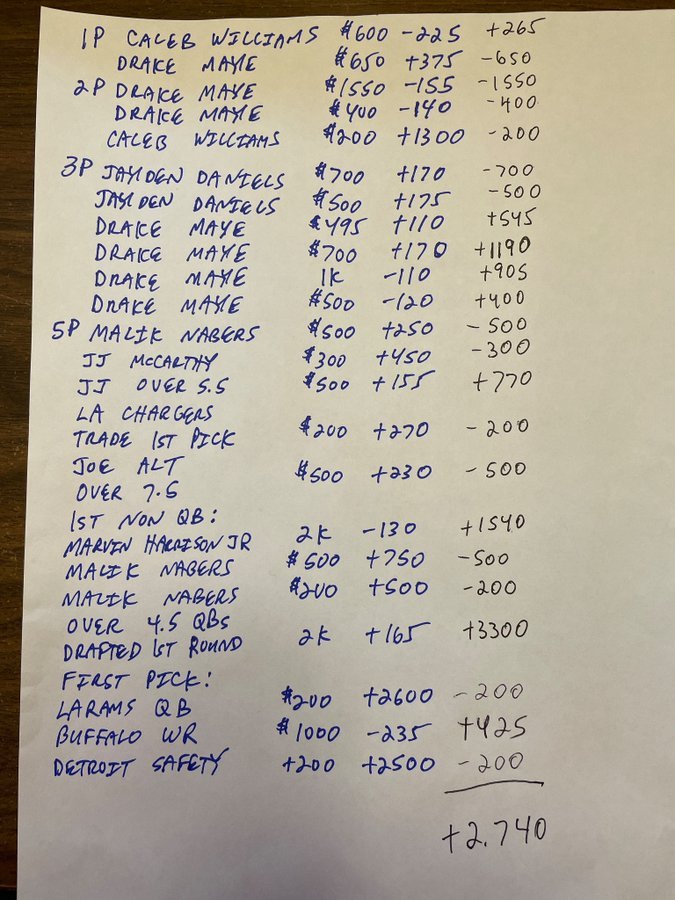 1P CALEB WILLIAMS $600 -225 +265
DRAKE MAYE $650 +375 -650
2P DRAKE MAYE $1550 -155 -1550
DRAKE MAYE $400 -140 -400
CALEB WILLIAMS $200 +1300 -200
3P JAYDEN DANIELS $700 +170 -700
JAYDEN DANIELS $500 +175 -500
DRAKE MAYE $495 +110 +545
DRAKE MAYE $700 +170 +1190
DRAKE MAYE 1K -110 +905
DRAKE MAYE $500 -120 +400
5P MALIK NABERS $500 +250 -500
JJ McCARTHY $300 +450 -300
JJ OVER 5.5 $500 +155 +770
LA CHARGERS
TRADE 1ST PICK $200 +270 -200
JOE ALT $500 +230 -500
OVER 7.5
1ST NON QB:
MARVIN HARRISON JR 2K -130 +1540
MALIK NABERS $500 +750 -500
MALIK NABERS $200 +500 -200
OVER 4.5 QBs
DRAFTED 1ST ROUND 2K +165 +3300
FIRST PICK:
LA RAMS QB $200 +2600 -200
BUFFALO WR $1000 -235 +425
DETROIT SAFETY +200 +2500 -200
+2.740